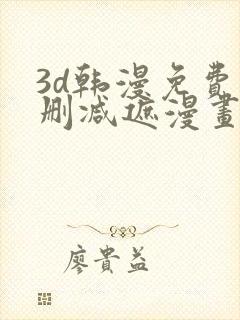 3d韩漫免费
删减遮漫畫
廖貴益